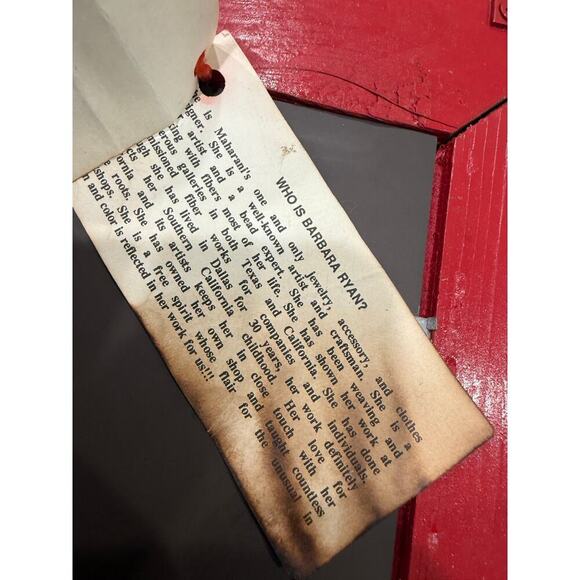 WHO IS BARBARA RYAN?
is Maharani's one and only jewelry, accessory, and clothes
She is a well-known artist and craftsman. She is a
artist and a bead expert. She has been weaving and
with fibers most of her life. She has shown her work at
galleries in both Texas and California. She has done
fiber works for companies and individuals.
she has lived in Dallas for 30 years, her work definitely
her Southern California childhood. Her love for
and its artists keeps her in close touch with her
roots. She has owned her own shop and taught countless
shops. She is a free spirit whose flair for the unusual in
and color is reflected in her work for us!!!